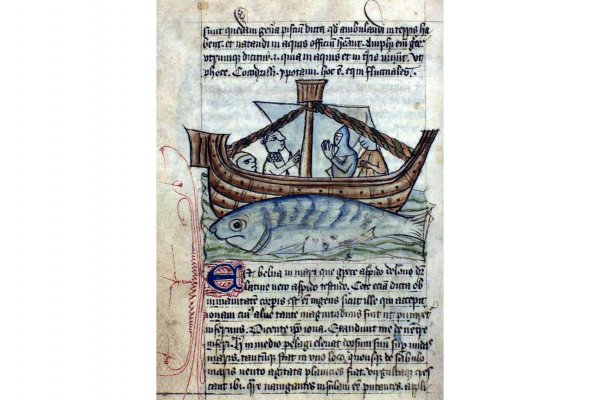 sunt quedam gen̄a pisciū dicta qđ ambulandi in terris ha
bent. et natandi in aquis officiū hēant. Amphi em̄ gre
dicitur .i. quia in aquis et in t̄ris uiuūt. Vt
phoce. Cocodrilli. ypotami. hoc ē equi fluctuales.
Est belua in mari que grece aspido delone dr̄
latine uero aspido testudo. Cete eciā dicta ob
inmanitatem corpis est eī ingens sicut ille qui excepit
ionam cui᾽ aluꝰ tante magnitudinis fuit ut putaret᾽
infernus. Dicente ip̄o iona. Exaudiuit me de uentre
inferi. in medio pelagi eleuat dorsum suū sup̄ undas
maris. tantūque stat in uno loco, quousque de sabulo
maris uento agitata planicies fiat. uirgultaque cres
cant ibi. Qr̄e nauigantes insulam eē putantes. appli